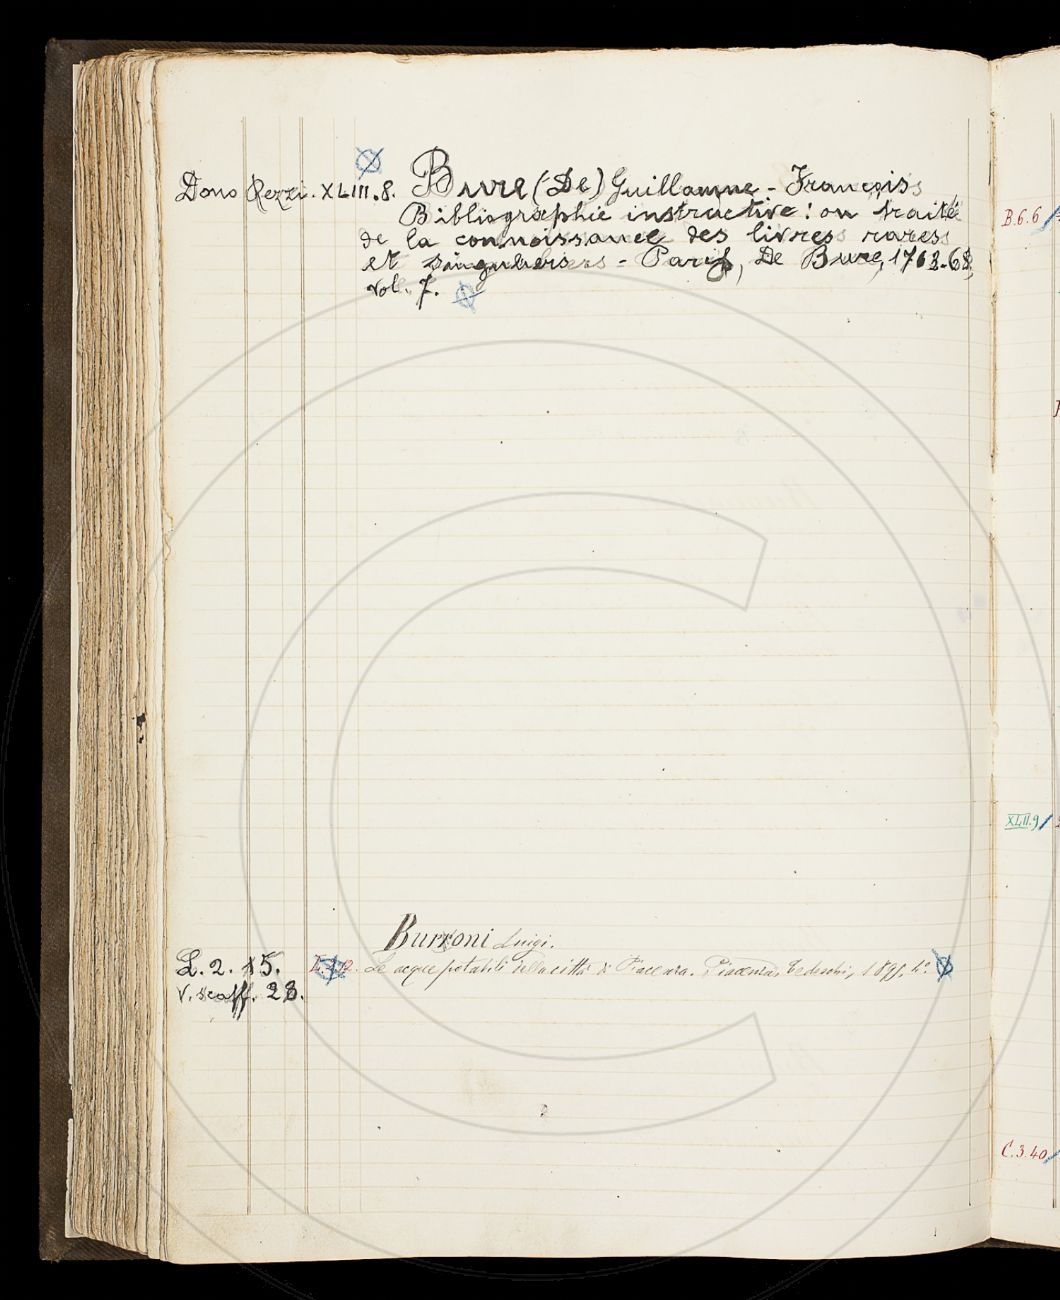 Dono Rezzi. XLIII.8. Bure (De) Guillaume - François
Bibliographie instructive: ou traité
de la connoissance des livres rares
et singuliers - Paris, De Bure, 1763-68,
vol. 7.
Burroni Luigi.
L. 2. 15. Le acque potabili della città di Piacenza. Piacenza. Tedeschi, 1895. 4º
V. scaff. 23.
B.6.6
XLII.9
C.3.40